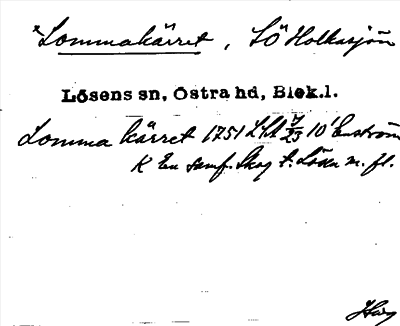 *Lommakärret, SÖ Holkasjön
Lösens sn, Östra hd, Blek.l.
Lomma kärret 1751 10' Enström
K En samf. Skog t. Lösen m. fl.